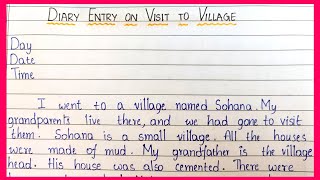 DIARY ENTRY ON VISIT TO VILLAGE
Day
Date
Time
I went to a village named Sohana. My
grandparents live there, and we had gone to visit
them. Sohana is a small village. All the houses
were made of mud. My grandfather is the village
head. His house was also cemented. There were